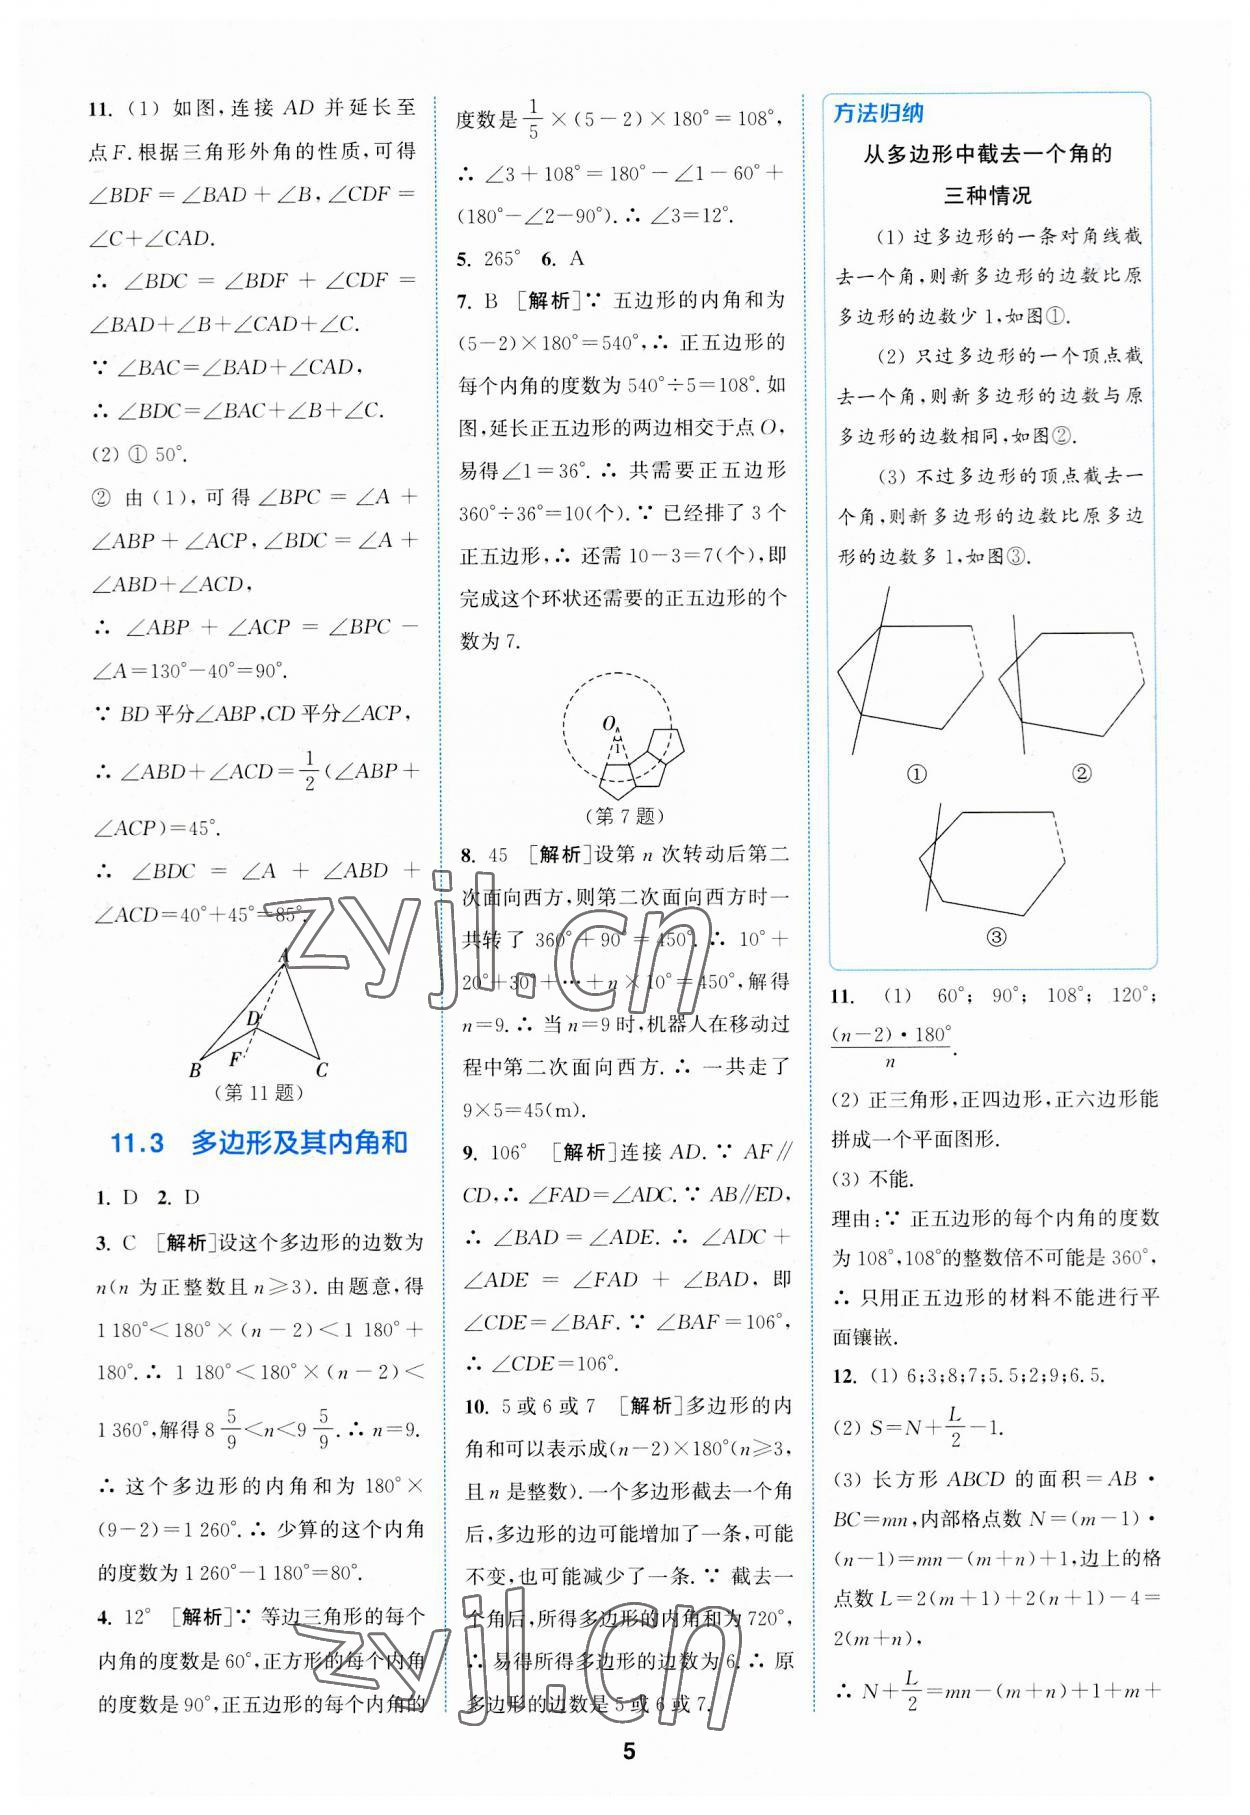 11. (1) 如图,连接 AD 并延长至
点F.根据三角形外角的性质,可得
∠BDF=∠BAD+∠B,∠CDF=
∠C+∠CAD.
∴ ∠BDC=∠BDF+∠CDF=
∠BAD+∠B+∠CAD+∠C.
∵ ∠BAC=∠BAD+∠CAD,
∴ ∠BDC=∠BAC+∠B+∠C.
(2) ① 50°.
② 由(1),可得∠BPC=∠A+
∠ABP+∠ACP,∠BDC=∠A+
∠ABD+∠ACD,
∴ ∠ABP+∠ACP=∠BPC-
∠A=130°-40°=90°.
∵ BD平分∠ABP,CD平分∠ACP,
∴ ∠ABD+∠ACD=1/2(∠ABP+
∠ACP)=45°.
∴ ∠BDC=∠A+∠ABD+
∠ACD=40°+45°=85°.
A
D
F
B
C
(第11题)
11.3 多边形及其内角和
1. D 2. D
3. C [解析]设这个多边形的边数为
n(n 为正整数且n≥3).由题意,得
1 180°<180°×(n-2)<1 180°+
180°.∴ 1 180°<180°×(n-2)<
1 360°,解得8 5/9<n<9 5/9.∴ n=9.
∴ 这个多边形的内角和为180°×
(9-2)=1 260°.∴ 少算的这个内角
的度数为1 260°-1 180°=80°.
4. 12° [解析]∵ 等边三角形的每个
内角的度数是60°,正方形的每个内角
的度数是90°,正五边形的每个内角的
度数是1/5×(5-2)×180°=108°,
∴ ∠3+108°=180°-∠1-60°+
(180°-∠2-90°).∴ ∠3=12°.
5. 265° 6. A
7. B [解析]∵ 五边形的内角和为
(5-2)×180°=540°,∴ 正五边形的
每个内角的度数为540°÷5=108°.如
图,延长正五边形的两边相交于点O,
易得∠1=36°.∴ 共需要正五边形
360°÷36°=10(个).∵ 已经排了3个
正五边形,∴ 还需10-3=7(个),即
完成这个环状还需要的正五边形的个
数为7.
O
1
(第7题)
8. 45 [解析]设第n次转动后第二
次面向西方,则第二次面向西方时一
共转了360°+90°=450°.∴ 10°+
20°+30°+…+n×10°=450°,解得
n=9.∴ 当n=9时,机器人在移动过
程中第二次面向西方.∴ 一共走了
9×5=45(m).
9. 106° [解析]连接AD.∵ AF∥
CD,∴ ∠FAD=∠ADC.∵ AB∥ED,
∴ ∠BAD=∠ADE.∴ ∠ADC+
∠ADE=∠FAD+∠BAD,即
∠CDE=∠BAF.∵ ∠BAF=106°,
∴ ∠CDE=106°.
10. 5或6或7 [解析]多边形的内
角和可以表示成(n-2)×180°(n≥3,
且n是整数).一个多边形截去一个角
后,多边形的边可能增加了一条,可能
不变,也可能减少了一条.∵ 截去一
个角后,所得多边形的内角和为720°,
∴ 易得所得多边形的边数为6.∴ 原
多边形的边数是5或6或7.
方法归纳
从多边形中截去一个角的
三种情况
(1) 过多边形的一条对角线截
去一个角,则新多边形的边数比原
多边形的边数少1,如图①.
(2) 只过多边形的一个顶点截
去一个角,则新多边形的边数与原
多边形的边数相同,如图②.
(3) 不过多边形的顶点截去一
个角,则新多边形的边数比原多边
形的边数多1,如图③.
①
②
③
11. (1) 60°;90°;108°;120°;
(n-2)·180°/n.
(2) 正三角形,正四边形,正六边形能
拼成一个平面图形.
(3) 不能.
理由:∵ 正五边形的每个内角的度数
为108°,108°的整数倍不可能是360°,
∴ 只用正五边形的材料不能进行平
面镶嵌.
12. (1) 6;3;8;7;5.5;2;9;6.5.
(2) S=N+L/2-1.
(3) 长方形ABCD的面积=AB·
BC=mn,内部格点数N=(m-1)·
(n-1)=mn-(m+n)+1,边上的格
点数L=2(m+1)+2(n+1)-4=
2(m+n),
∴ N+L/2=mn-(m+n)+1+m+
zyjl.cn
zyjl.cn
5